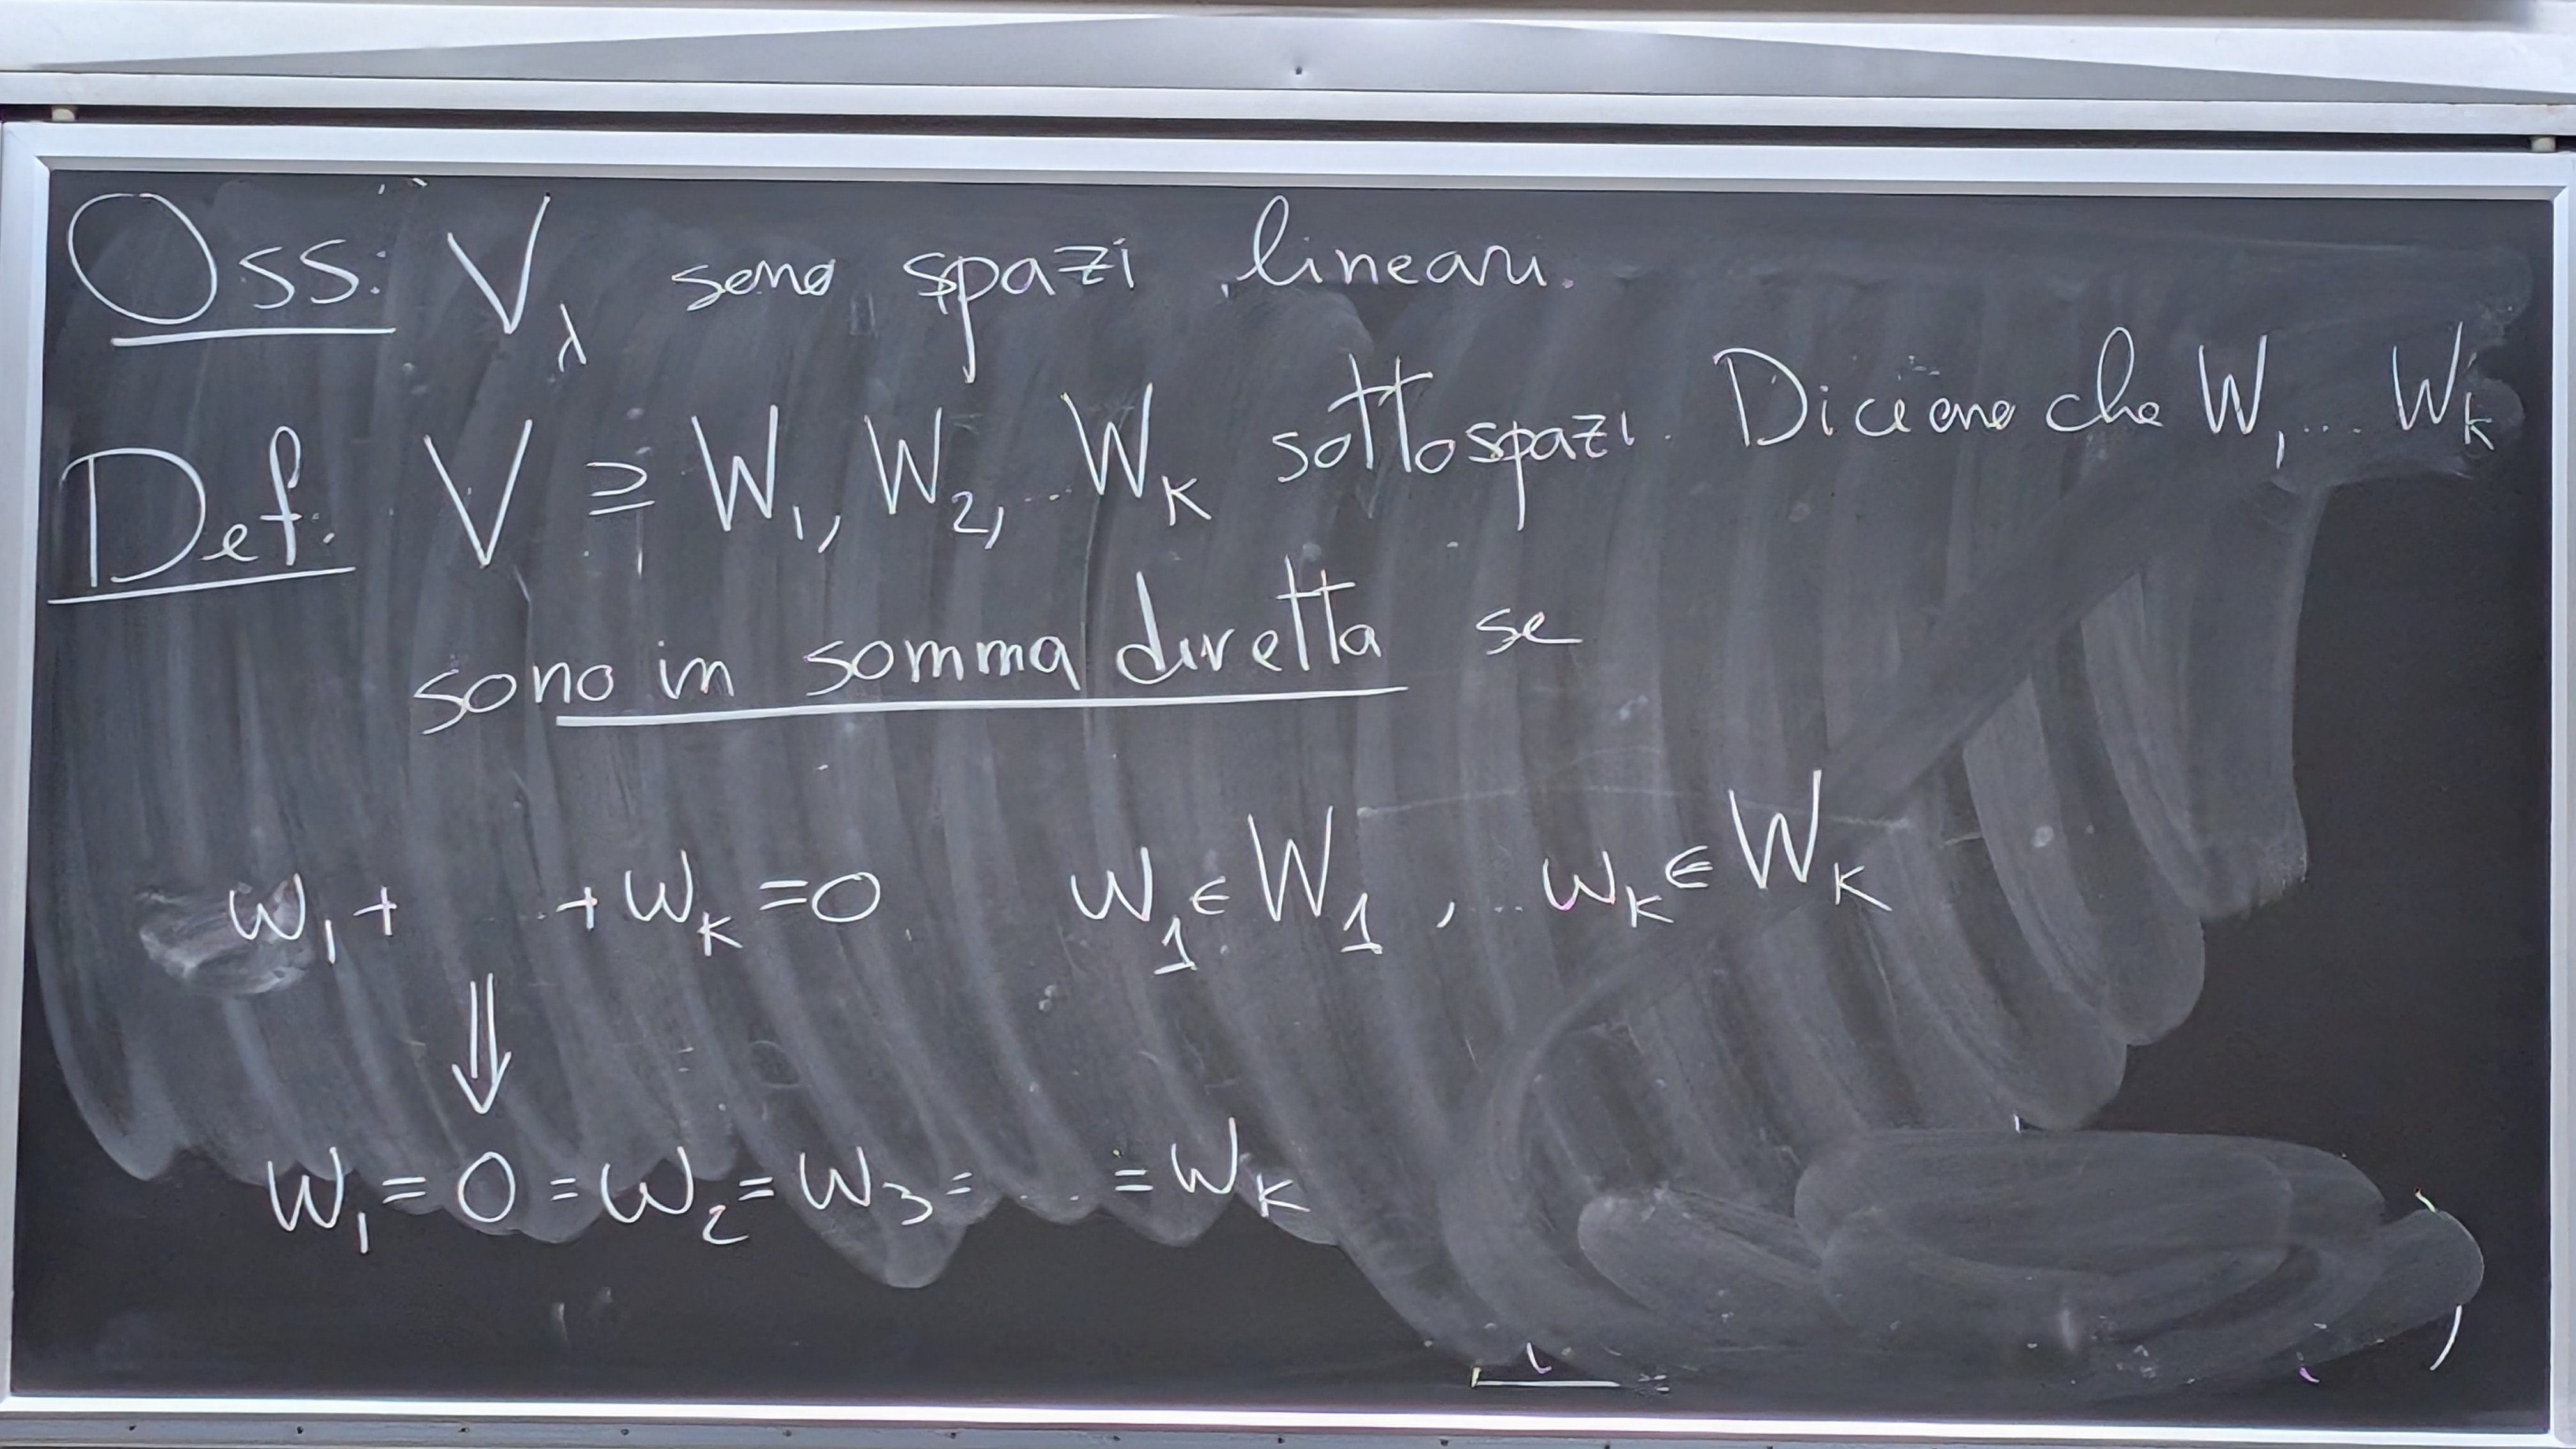 Oss: V_λ sono spazi lineari.
Def: V ⊇ W_1, W_2, ... W_K sottospazi. Diciamo che W_1 .... W_k
sono in somma diretta se
w_1 + .. + w_K = 0 w_1 ∈ W_1, ... w_K ∈ W_K
⇓
w_1 = 0 = w_2 = w_3 = .... = w_K